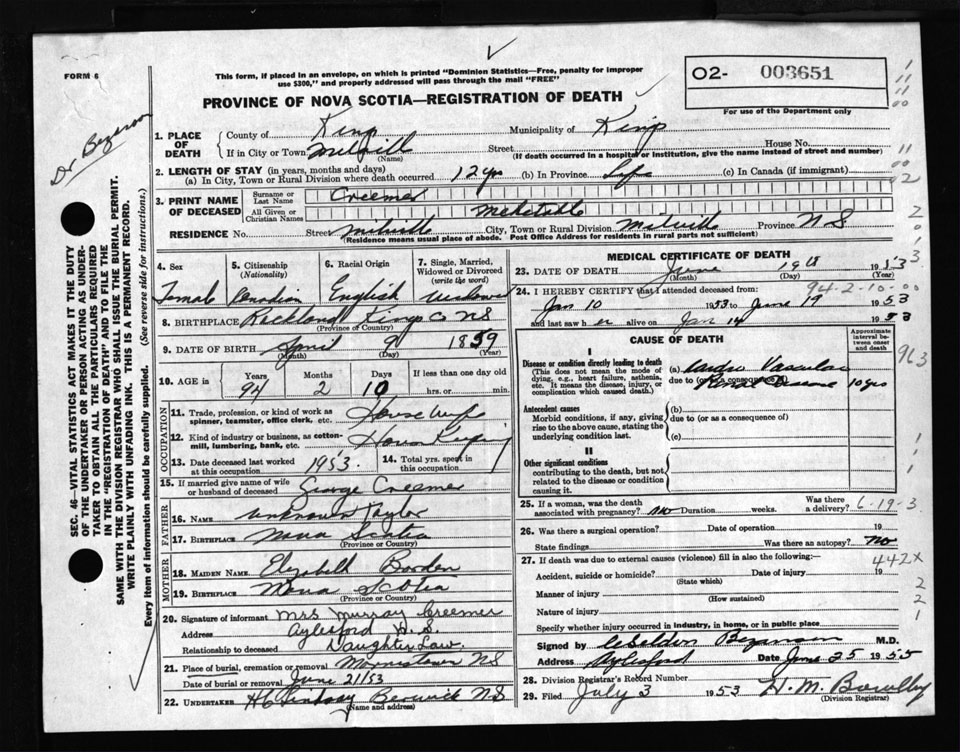 FORM 6
This form, if placed in an envelope, on which is printed "Dominion Statistics—Free, penalty for improper
use $300," and properly addressed will pass through the mail "FREE"
PROVINCE OF NOVA SCOTIA—REGISTRATION OF DEATH
O2- 003651
For use of the Department only
Dr Bezanson
SEC. 46—VITAL STATISTICS ACT MAKES IT THE DUTY
OF THE UNDERTAKER OR PERSON ACTING AS UNDER-
TAKER TO OBTAIN ALL THE PARTICULARS REQUIRED
IN THE "REGISTRATION OF DEATH" AND TO FILE THE
SAME WITH THE DIVISION REGISTRAR WHO SHALL ISSUE THE BURIAL PERMIT.
WRITE PLAINLY WITH UNFADING INK. THIS IS A PERMANENT RECORD.
Every item of Information should be carefully supplied. (See reverse side for instructions.)
1. PLACE OF DEATH
County of Kings Municipality of Kings
If in City or Town Milville (Name) Street House No.
(If death occurred in a hospital or institution, give the name instead of street and number)
2. LENGTH OF STAY (in years, months and days)
(a) In City, Town or Rural Division where death occurred 12 yrs (b) In Province Life (c) In Canada (if immigrant)
3. PRINT NAME OF DECEASED
Surname or Last Name Creemer
All Given or Christian Names Mehetable
RESIDENCE No. Street Milville City, Town or Rural Division Milville Province N S
(Residence means usual place of abode. Post Office Address for residents in rural parts not sufficient)
4. Sex Female
5. Citizenship (Nationality) Canadian
6. Racial Origin English
7. Single, Married, Widowed or Divorced (write the word) Widowed
8. BIRTHPLACE Rockland Kings Co NS
(Province or Country)
9. DATE OF BIRTH April (Month) 9 (Day) 1859 (Year)
10. AGE in Years 94 Months 2 Days 10 If less than one day old hrs. or min.
OCCUPATION
11. Trade, profession, or kind of work as spinner, teamster, office clerk, etc. House Wife
12. Kind of industry or business, as cotton-mill, lumbering, bank, etc. House Keeping
13. Date deceased last worked at this occupation 1953 14. Total yrs. spent in this occupation
15. If married give name of wife or husband of deceased George Creemer
FATHER
16. NAME unknown Taylor
17. BIRTHPLACE Nova Scotia
(Province or Country)
MOTHER
18. MAIDEN NAME Elizabeth Borden
19. BIRTHPLACE Nova Scotia
(Province or Country)
20. Signature of informant Mrs Murray Creemer
Address Aylesford N.S.
Relationship to deceased Daughter Law.
21. Place of burial, cremation or removal Morristown NS
Date of burial or removal June 21/53
22. UNDERTAKER H C Lindsay Berwick NS
(Name and address)
MEDICAL CERTIFICATE OF DEATH
23. DATE OF DEATH June (Month) 19 (Day) 1953
94-2-10-00
24. I HEREBY CERTIFY that I attended deceased from:
Jan 10 1953 to June 19 1953
and last saw her alive on Jan 14 1953
CAUSE OF DEATH
Approximate interval between onset and death
I
Disease or condition directly leading to death
(This does not mean the mode of dying, e.g., heart failure, asthenia, etc. It means the disease, injury, or complication which caused death.)
(a) Cardio Vascular
due to (or as a consequence of) Renal Disease 10 yrs
Antecedent causes
Morbid conditions, if any, giving rise to the above cause, stating the underlying condition last.
(b)
due to (or as a consequence of)
(c)
II
Other significant conditions
contributing to the death, but not related to the disease or condition causing it.
25. If a woman, was the death associated with pregnancy? No Duration weeks. Was there a delivery? 6-19-3
26. Was there a surgical operation? Date of operation 19
State findings Was there an autopsy? No
27. If death was due to external causes (violence) fill in also the following:—
442X
Accident, suicide or homicide? Date of injury 19
(State which)
Manner of injury
(How sustained)
Nature of injury
Specify whether injury occurred in industry, in home, or in public place
Signed by Weldon Bezanson M.D.
Address Aylesford Date June 25 1955
28. Division Registrar's Record Number
29. Filed July 3 1953 H. M. Bowlby
(Division Registrar)